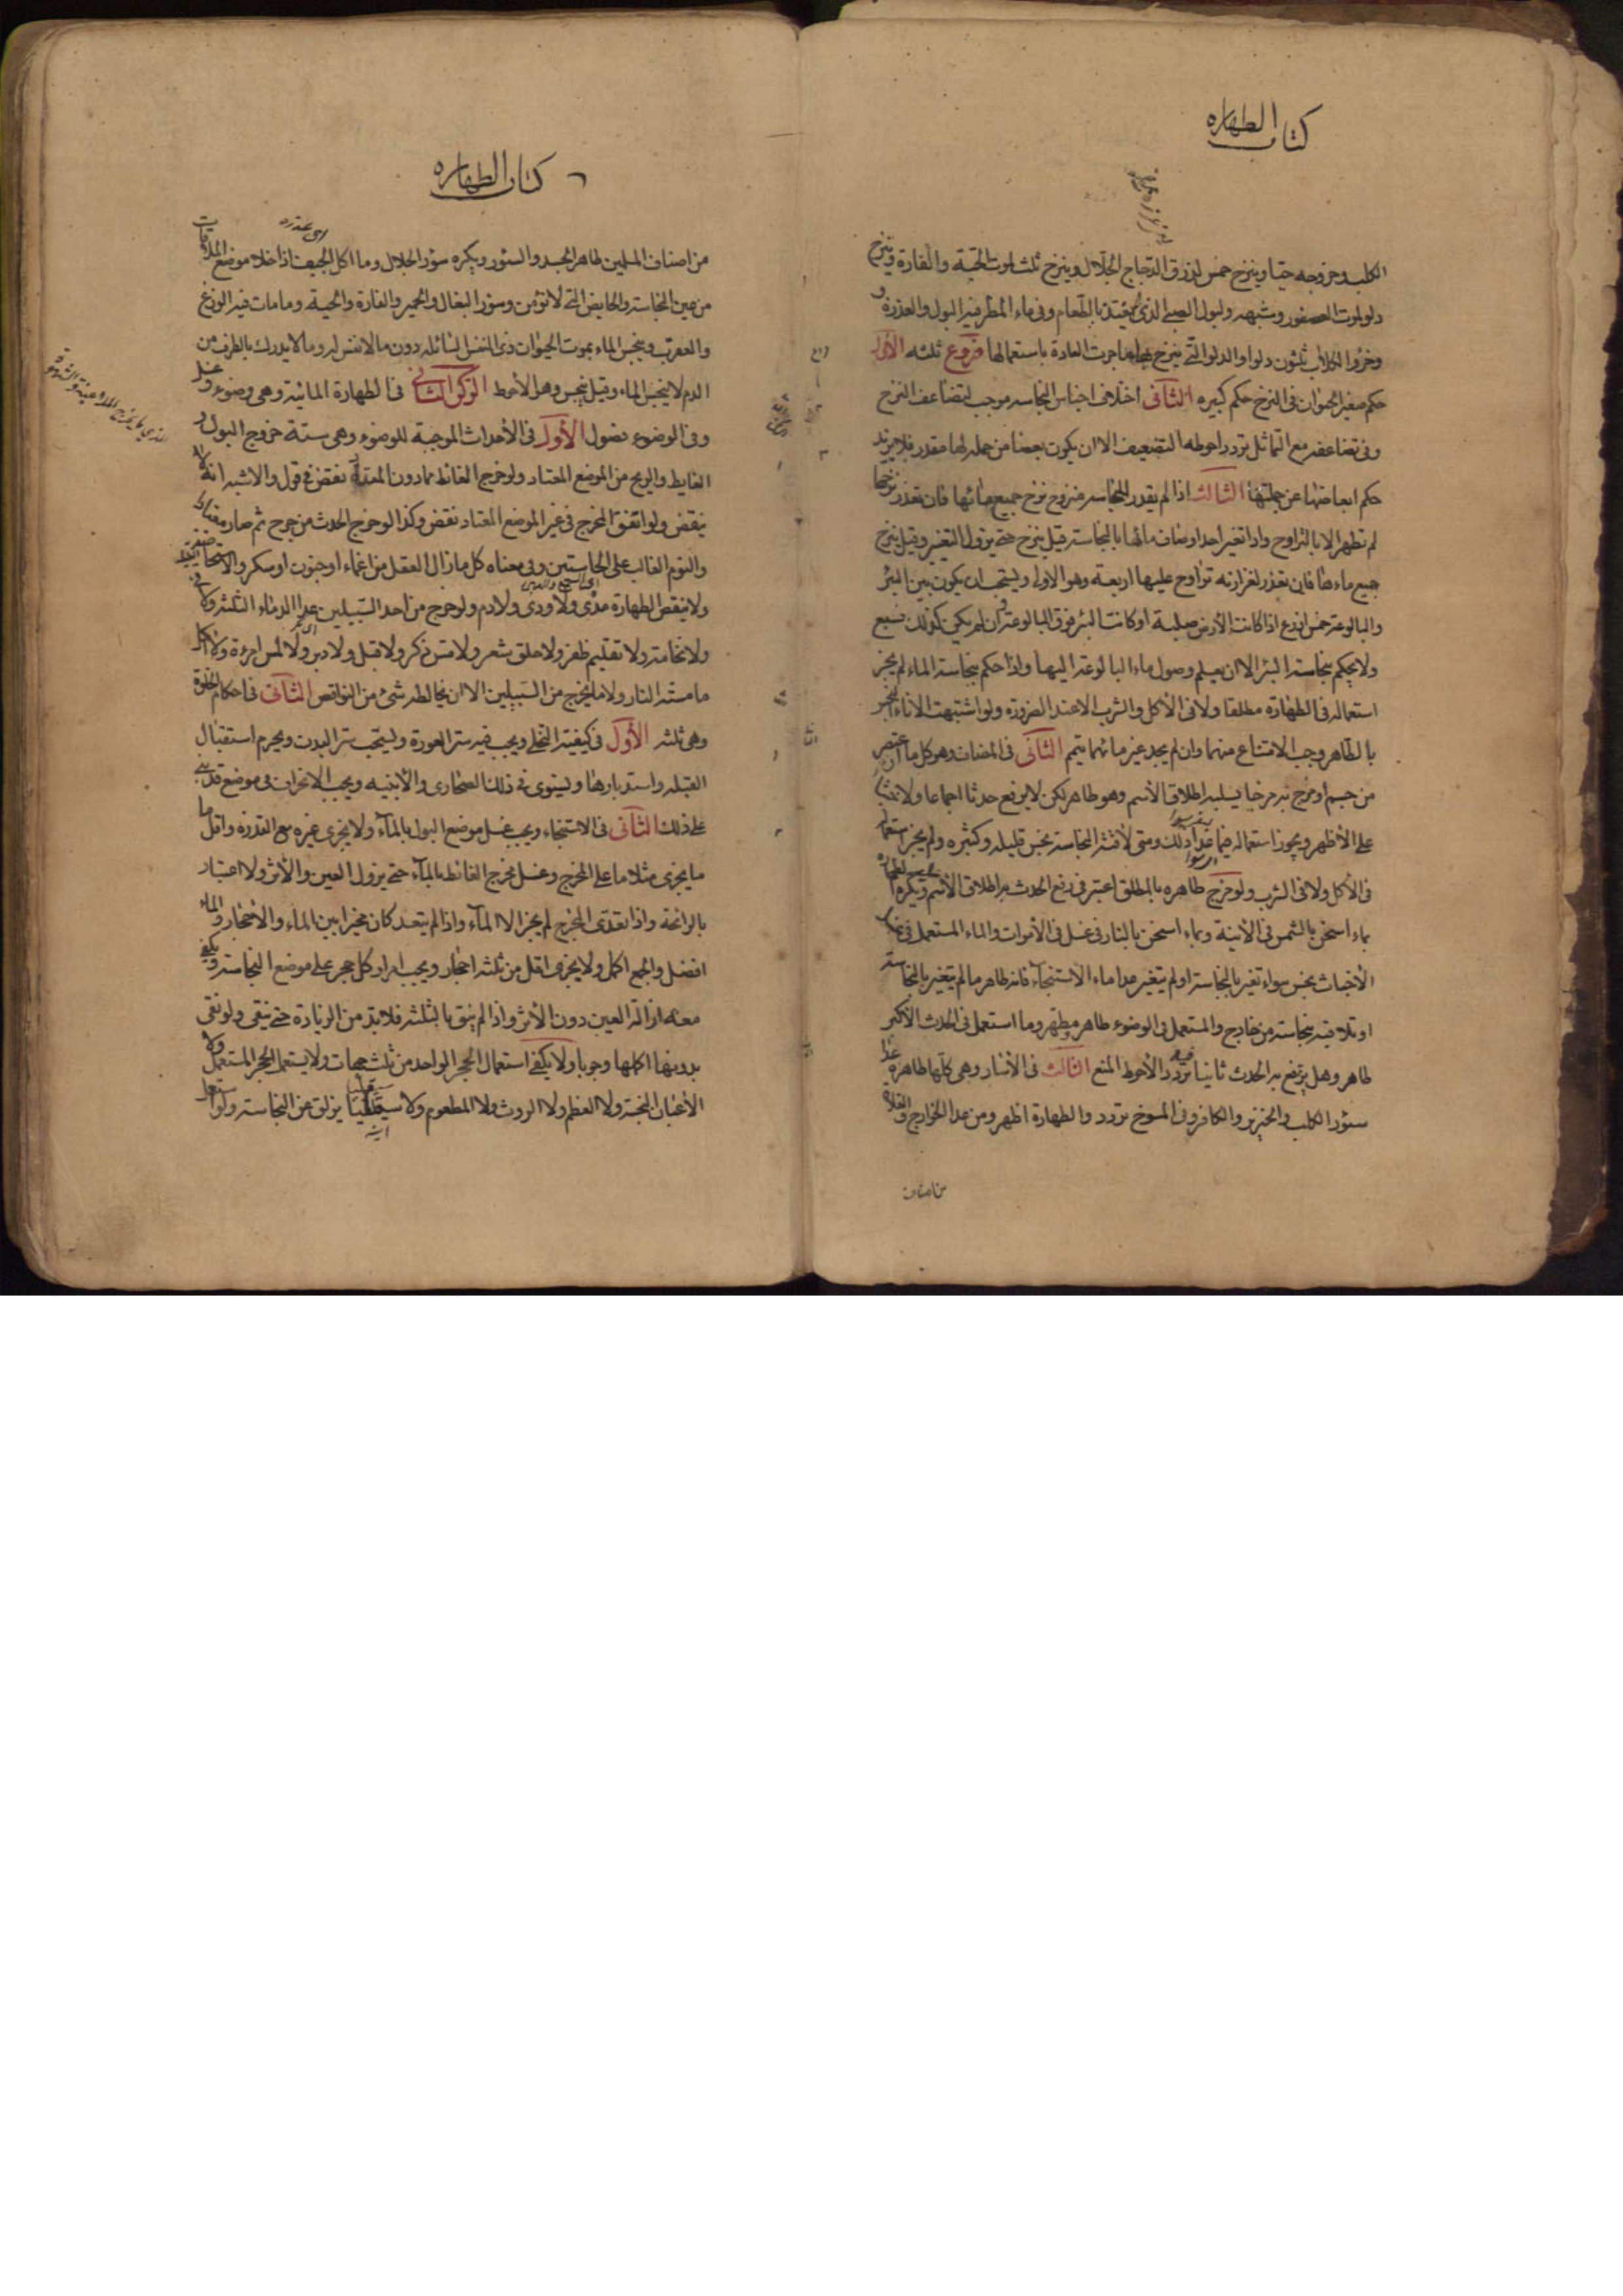 كتاب الطهاره
الكلب وخروجه حيّا وينزح خمس لذرق الدّجاج الجلّال وينزح ثلث لموت الحيّة والفارة وينزح
دلو لموت العصفور وشبهه ولبول الصبى الذى لم يغتذ بالطّعام وفى ماء المطر فيه البول والعذرة و
وخرؤ الكلاب ثلثون دلوا والدلو الّتى ينزح بها ما جرت العادة باستعمالها فروع ثلثه الأوّل
حكم صغير الحيوان فى النزح حكم كبيره الثّانى اختلاف اجناس النجاسه موجب لتضاعف النزح
وفى تضاعفه مع التماثل تردد احوطه التضعيف الا ان يكون بعضا من جمله لها مقدر فلا يزيد
حكم ابعاضها عن جملتها الثالث اذا لم يقدر للنجاسه منزوح نزح جميع مائها فان تعذر نزحها
لم تطهر الا بالتراوح واذا تغير احد اوصاف مائها بالنجاسة قيل ينزح حتى يزول التغير وقيل ينزح
جميع ماءها فان تعذر لغزارته تراوح عليها اربعة وهو الاولى ويستحب ان يكون بين البئر
والبالوعة خمس اذرع اذا كانت الأرض صلبة او كانت البئر فوق البالوعة وان لم يكن كذلك فسبع
ولا يحكم بنجاسة البئر الا ان يعلم وصول ماء البالوعة اليها واذا حكم بنجاسة الماء لم يجز
استعماله فى الطهارة مطلقا ولا فى الأكل والشرب الا عند الضرورة ولو اشتبهت الاناء النجس
بالطّاهر وجب الامتناع منهما وان لم يجد غير مائهما تيمم الثّانى فى المضاف وهو كل ما اعتصر
من جسم او مزج به مزجا يسلبه اطلاق الأسم وهو طاهر لكن لا يرفع حدثا اجماعا ولا خبثا
على الأظهر ويجوز استعماله فيما عدا ذلك ومتى لاقته النجاسة نجس قليله وكثيره ولم يجز استعماله
فى الأكل ولا فى الشرب ولو مزج طاهره بالمطلق اعتبر فى رفع الحدث به اطلاق الأسم وتكره الطهارة
بماء اسخن بالشمس فى الأنية وبماء اسخن بالنار فى غسل الأموات والماء المستعمل فى غسل
الأخباث نجس سواء تغير بالنجاسة او لم يتغير عدا ماء الاستنجاء فانه طاهر ما لم يتغير بالنجاسة
او تلاقيه نجاسة من خارج والمستعمل فى الوضوء طاهر ومطهر وما استعمل فى الحدث الأكبر
طاهر وهل يرفع به الحدث ثانيا فيه تردد والأحوط المنع الثالث فى الأسار وهى كلها طاهرة عدا
سئور الكلب والخنزير والكافر وفى المسوخ تردد والطهارة اظهر ومن عدا الخوارج والغلاة
من اصناف
٦ كتاب الطهاره
اى عذره
من اصناف المسلمين طاهر الجسد والسئور ويكره سؤر الجلال وما اكل الجيف اذا خلا موضع الملاقات
من عين النجاسة والحايض التى لا تؤمن وسؤر البغال والحمير والفارة والحية وما مات فيه الوزغ
والعقرب وينجس الماء بموت الحيوان ذى النفس السائله دون ما لا نفس له وما لا يدرك بالطرف من
الدم لا ينجس الماء وقيل ينجس وهو الأحوط الركن الثانى فى الطهارة المائية وهى وضوء وغسل
وفى الوضوء فصول الأوّل فى الأحداث الموجبة للوضوء وهى ستة خروج البول و
الغايط والريح من الموضع المعتاد ولو خرج الغائط مما دون المعدة نقض فى قول والاشبه انه لا
ينقض ولو اتفق المخرج فى غير الموضع المعتاد نقض وكذا لو خرج الحدث من جرح ثم صار معتادا
والنوم الغالب على الحاستين وفى معناه كل ما زال العقل من اغماء او جنون او سكر والاستحاضة القليلة
ولا ينقض الطهارة مذى ولا ودى ولا دم ولو خرج من احد السّبيلين عدا الدماء الثلثة ولا قى
ولا نخامة ولا تقليم ظفر ولا حلق شعر ولا مس ذكر ولا قبل ولا دبر ولا لمس امرءة ولا اكل
ما مسّته النار ولا ما يخرج من السّبيلين الا ان يخالطه شئ من النواقض الثّانى فى احكام الخلوة
وهى ثلثه الأوّل فى كيفية التخلى ويجب فيه ستر العورة ويستحب ستر البدن ويحرم استقبال
القبله واستدبارها ويستوى فى ذلك الصحارى والأبنيه ويجب الانحراف فى موضع قد بنى
على ذلك الثّانى فى الاستنجاء ويجب غسل موضع البول بالمآء ولا يجزى غيره مع القدرة واقل ما
يجزى مثلا ما على المخرج وغسل مخرج الغائط بالمآء حتى يزول العين والأثر ولا اعتبار
بالرائحة واذا تعدّى المخرج لم يجز الا المآء واذا لم يتعد كان مخيرا بين الماء والأحجار والماء
افضل والجمع اكمل ولا يجزى اقل من ثلثة احجار ويجب امرار كل حجر على موضع النجاسة ويكفى
معه ازالة العين دون الأثر واذا لم ينق بالثلثة فلا بد من الزيادة حتى ينقى ولو نقى
بدونها اكملها وجوبا ولا يكفى استعمال الحجر الواحد من ثلث جهات ولا يستعمل الحجر المستعمل ولا
الأعيان النجسة ولا العظم ولا الروث ولا المطعوم ولا صيقل يزلق عن النجاسة ولو استعمل